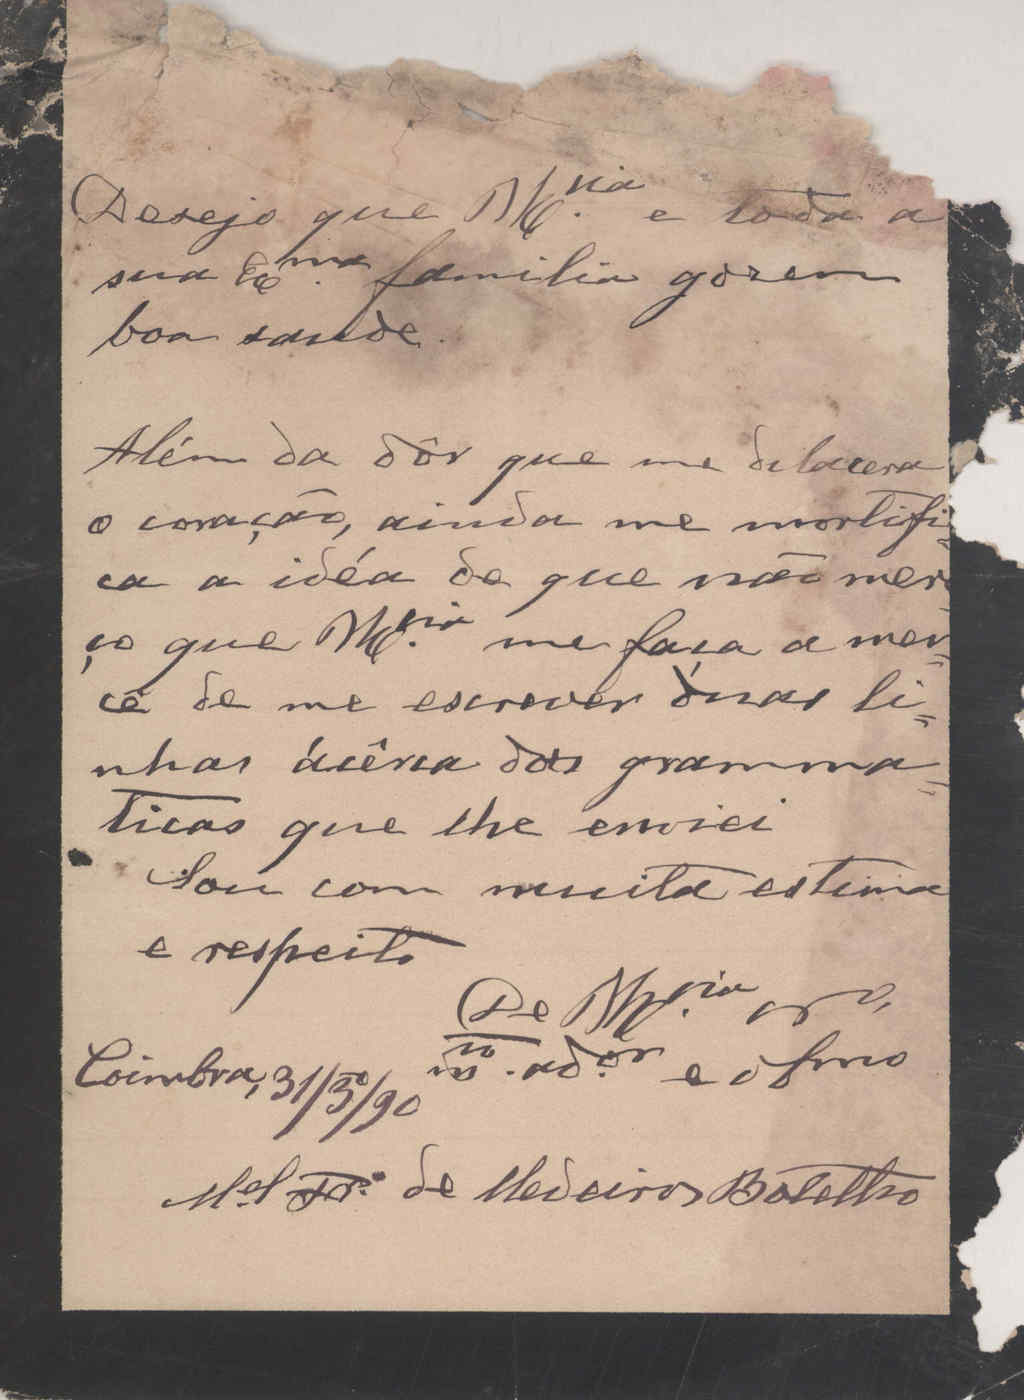 Desejo que V. Ex.cia e toda a
sua Ex.ma familia gozem
boa saude.
Além da dôr que me dilacera
o coração, ainda me mortifi=
ca a idéa de que não mere=
ço que V. Ex.cia me faça a mer=
cê de me escrever duas li=
nhas ácêrca das gramma=
ticas que lhe enviei
Sou com muita estima
e respeito
De V. Ex.cia
m.to ad.or e obgmo
Coimbra, 31/3º/90
M.el de Medeiros Botelho